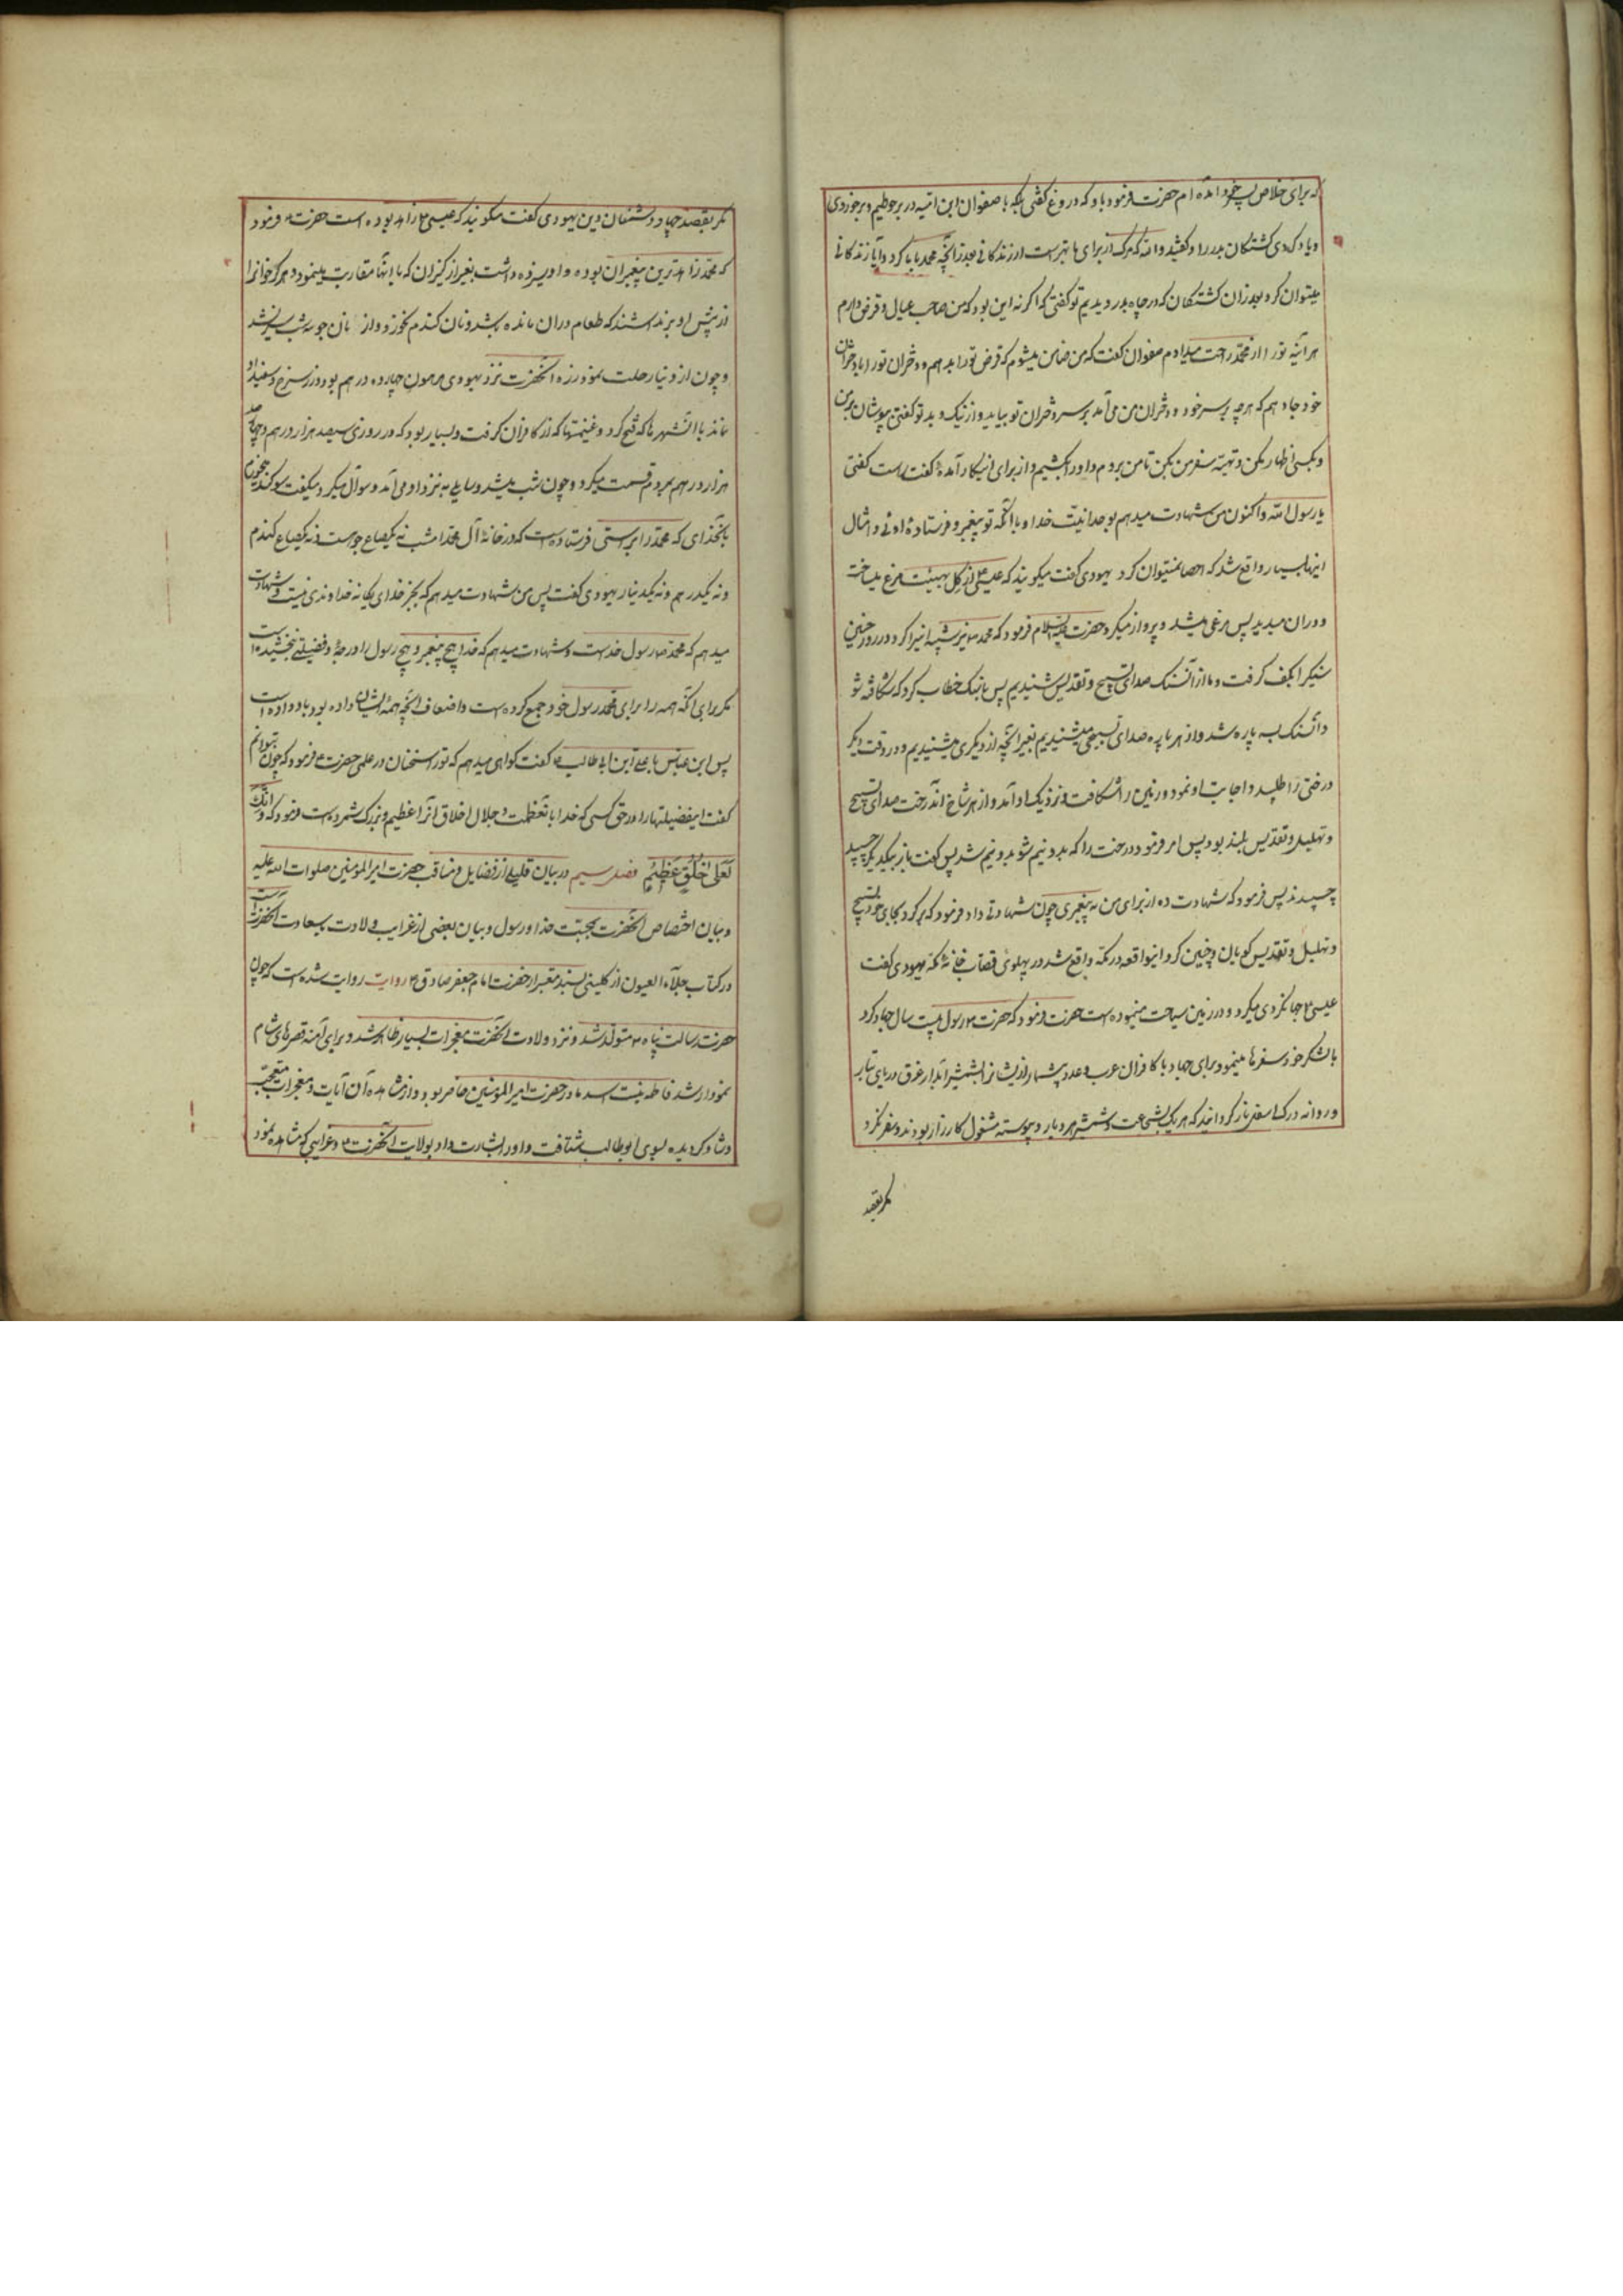 که برای خلاص پسر خود آمده ام حضرت فرمود باو که دروغ گفتی بلکه با صفوان ابن امیه در بر حطیم و بر خوردی
و یاد کردی کشتگان بدر را و گفتید والله که مرک از برای ما بهتر است از زندگانی بعد از آنچه محمد با ما کرد و آیا زندگانی
میتوان کرد بعد از آن کشتگان که در چاه بدر دیدیم تو گفتی که اگر نه این بود که من صاحب عیال و قرض دارم
هر آینه تو را از محمد راحت میدادم صفوان گفت که من ضامن میشوم که قرض تو را بدهم و دختران تو را با دختران
خود جا دهم که هر چه بر سر خود و دختران من می آید بر سر دختران تو بیاید از نیک و بد تو گفتی بپوشان بر من
و بکسی اظهار مکن و تهیه سفر من بکن تا من بروم و او را بکشیم و از برای اینکار آمده گفت راست گفتی
یا رسول الله و اکنون من شهادت میدهم بوحدانیت خدا و بآنکه تو پیغمبر و فرستاده اوئی و امثال
اینها بسیار واقع شد که احصا نمیتوان کرد یهودی گفت میگویند که عیسی از گل بهیئت مرغ میساخت
و در آن میدمید پس مرغی میشد و پرواز میکرد حضرت علیه السلام فرمود که محمد نیز شبیه اینرا کرد و در روز حنین
سنگی را بکف گرفت و ما از آن سنگ صدای تسبیح و تقدیس شنیدیم پس با سنگ خطاب کرد که شکافته شو
و آن سنگ سه پاره شد و از هر پاره صدای تسبیحی میشنیدیم بغیر آنچه از دیگری میشنیدیم و در وقت دیگر
درختی را طلبید و اجابت او نمود و زمین را شکافت و نزدیک او آمد و از هر شاخ آن درخت صدای تسبیح
و تهلیل و تقدیس بلند بود پس امر فرمود درخت را که بدو نیم شو بدو نیم شد پس گفت باز بیکدیگر چسپید
چسپیدند پس فرمود که شهادت ده از برای من به پیغمبری چون شهادت داد فرمود که برگرد بجای خود تسبیح
و تهلیل و تقدیس گویان و چنین کرد و اینواقعه در مکه واقع شد در پهلوی قصاب خانه مکه یهودی گفت
عیسی جهانگردی میکرد و در زمین سیاحت مینموده است حضرت فرمود که حضرت رسول بیست سال جهاد کرد
با لشکر خود سفرها مینمود برای جهاد با کافران عرب و عدد بیشمار از ایشانرا بشمشیر آبدار غرق دریای تبار
و روانه درک اسفل نار گردانید که هر یک بشجاعت و شمشیر هر دیار و پیوسته مشغول کارزار بودند و سفر نکرد
مگر بقصد
مگر بقصد جهاد دشمنان دین یهودی گفت میگویند که عیسی زاهد بوده است حضرت فرمود
که محمد زاهدترین پیغمبران بوده و او سیزده زن داشت بغیر از کنیزان که با اینها مقاربت مینمود و هرگز خوانرا
از پیش او برنداشتند که طعام در آن مانده باشد و نان گندم نخورد و از نان جو سه شب سیر نشد
و چون از دنیا رحلت نمود زره آنحضرت نزد یهودی مرهون چهارده درهم بود و زر سرخ و سفید از او
نماند با آن شهرها که فتح کرد و غنیمتها که از کافران گرفت و بسیار بود که در روزی سیصد هزار درهم و چهار صد
هزار درهم بمردم قسمت میکرد و چون شب میشد و سایلی بنزد او می آمد و سوآل میکرد میگفت سوگند میخورم
بآنخدای که محمد را براستی فرستاده است که در خانه آل محمد امشب نه یکصاع جو است و نه یکصاع گندم
و نه یکدرهم و نه یکدینار یهودی گفت پس من شهادت میدهم که بجز خدای یگانه خداوندی نیست و شهادت
میدهم که محمد رسول خداست و شهادت میدهم که خدا هیچ پیغمبر و هیچ رسول را درجه و فضیلتی نبخشیده است
مگر برای آنکه همه را برای محمد رسول خود جمع کرده است و اضعاف آنچه بهمه ایشان داده بود باو داده است
پس ابن عباس با علی ابن ابی طالب گفت گواهی میدهم که تو راسخان در علمی حضرت فرمود که چون نتوانم
گفت این فضیلتها را در حق کسی که خدا با تعظمت و جلال اخلاق آنرا عظیم و بزرگ شمرده است و فرمود که و انک
لَعَلی خُلُقٍ عَظیمٍ فصل سیم در بیان قلیلی از فضایل و مناقب حضرت امیر المؤمنین صلوات الله علیه
و بیان اختصاص آنحضرت بمحبت خدا و رسول و بیان بعضی از غرایب ولادت با سعادت آنحضرت است
در کتاب جلآء العیون از کلینی بسند معتبر از حضرت امام جعفر صادق روایت روایت شده است که چون
حضرت رسالت پناه متولد شد و نزد ولادت آنحضرت معجزات بسیار ظاهر شد و برای آمنه قصرهای شام
نمودار شد فاطمه بنت اسد مادر حضرت امیر المؤمنین حاضر بود و از مشاهده آن آیات و معجزات متعجب
و شاد گردیده بسوی ابو طالب شتافت و او را بشارت داد بولادت آنحضرت و غرایبی که مشاهده نمود